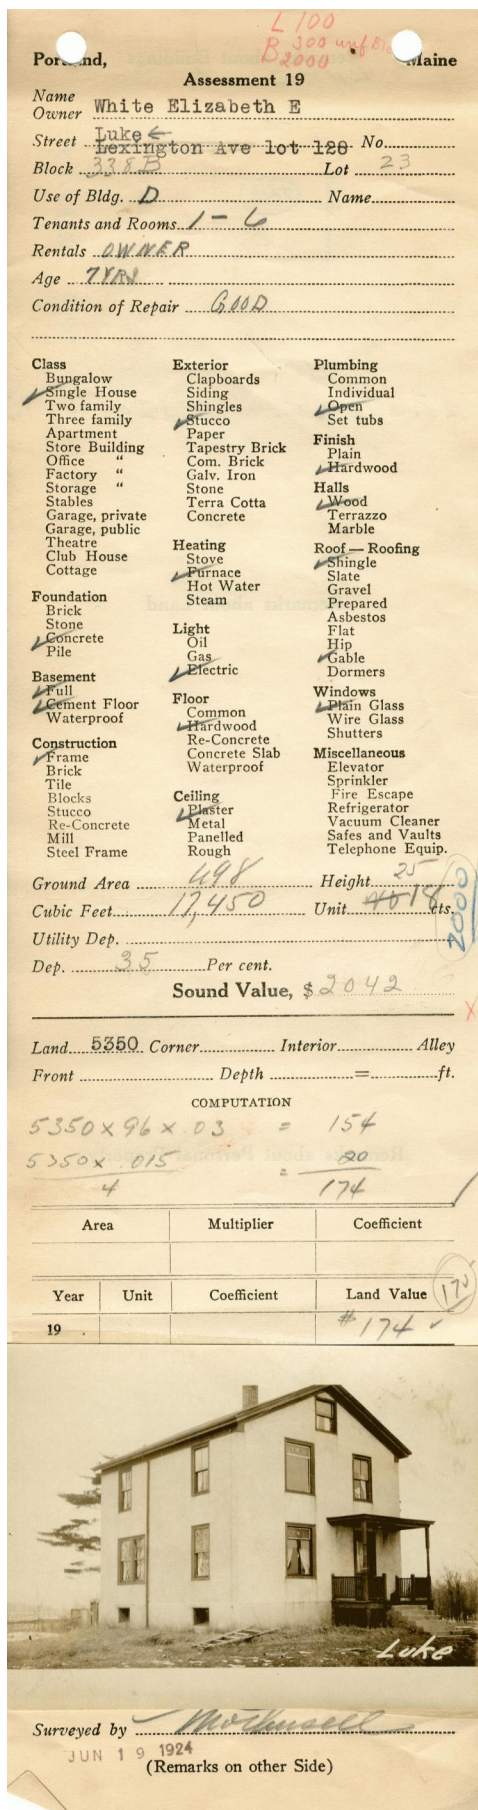 L 100
B 300
2000
Portland, Maine
Assessment 19
Name
Owner White Elizabeth E
Luke ←
Street Lexington Ave lot 128 No.
Block 338B Lot 23
Use of Bldg. D Name
Tenants and Rooms 1-6
Rentals OWNER
Age 7 YRS
Condition of Repair GOOD
Class
Bungalow
✓ Single House
Two family
Three family
Apartment
Store Building
Office "
Factory "
Storage "
Stables
Garage, private
Garage, public
Theatre
Club House
Cottage
Foundation
Brick
Stone
✓ Concrete
Pile
Basement
✓ Full
✓ Cement Floor
Waterproof
Construction
✓ Frame
Brick
Tile
Blocks
Stucco
Re-Concrete
Mill
Steel Frame
Exterior
Clapboards
Siding
Shingles
✓ Stucco
Paper
Tapestry Brick
Com. Brick
Galv. Iron
Stone
Terra Cotta
Concrete
Heating
Stove
✓ Furnace
Hot Water
Steam
Light
Oil
Gas
✓ Electric
Floor
Common
✓ Hardwood
Re-Concrete
Concrete Slab
Waterproof
Ceiling
✓ Plaster
Metal
Panelled
Rough
Plumbing
Common
Individual
✓ Open
Set tubs
Finish
Plain
✓ Hardwood
Halls
✓ Wood
Terrazzo
Marble
Roof — Roofing
✓ Shingle
Slate
Gravel
Prepared
Asbestos
Flat
Hip
✓ Gable
Dormers
Windows
✓ Plain Glass
Wire Glass
Shutters
Miscellaneous
Elevator
Sprinkler
Fire Escape
Refrigerator
Vacuum Cleaner
Safes and Vaults
Telephone Equip.
Ground Area 698 Height 25
Cubic Feet 17,450 Unit 18 cts.
2000
Utility Dep.
Dep. 35 Per cent.
Sound Value, $ 2042
Land 5350 Corner Interior Alley
Front Depth = ft.
COMPUTATION
5350 x 96 x .03 = 154
5350 x .015 = 20
4 174
Area Multiplier Coefficient
Year Unit Coefficient Land Value 175
19 . $174 ✓
Luke
Surveyed by
JUN 19 1924
(Remarks on other Side)